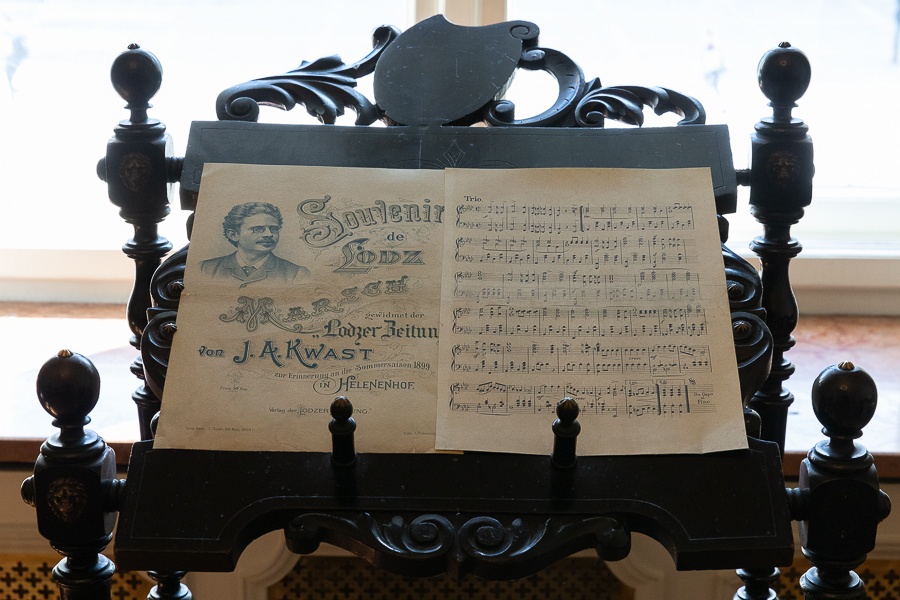 Souvenir
de
Lodz
Marsch
gewidmet der
„Lodzer Zeitun
von J. A. Kwast
zur Erinnerung an die Sommersaison 1899
in Helenenhof.
Verlag der Lodzer
Trio.
Da Capo
Fine